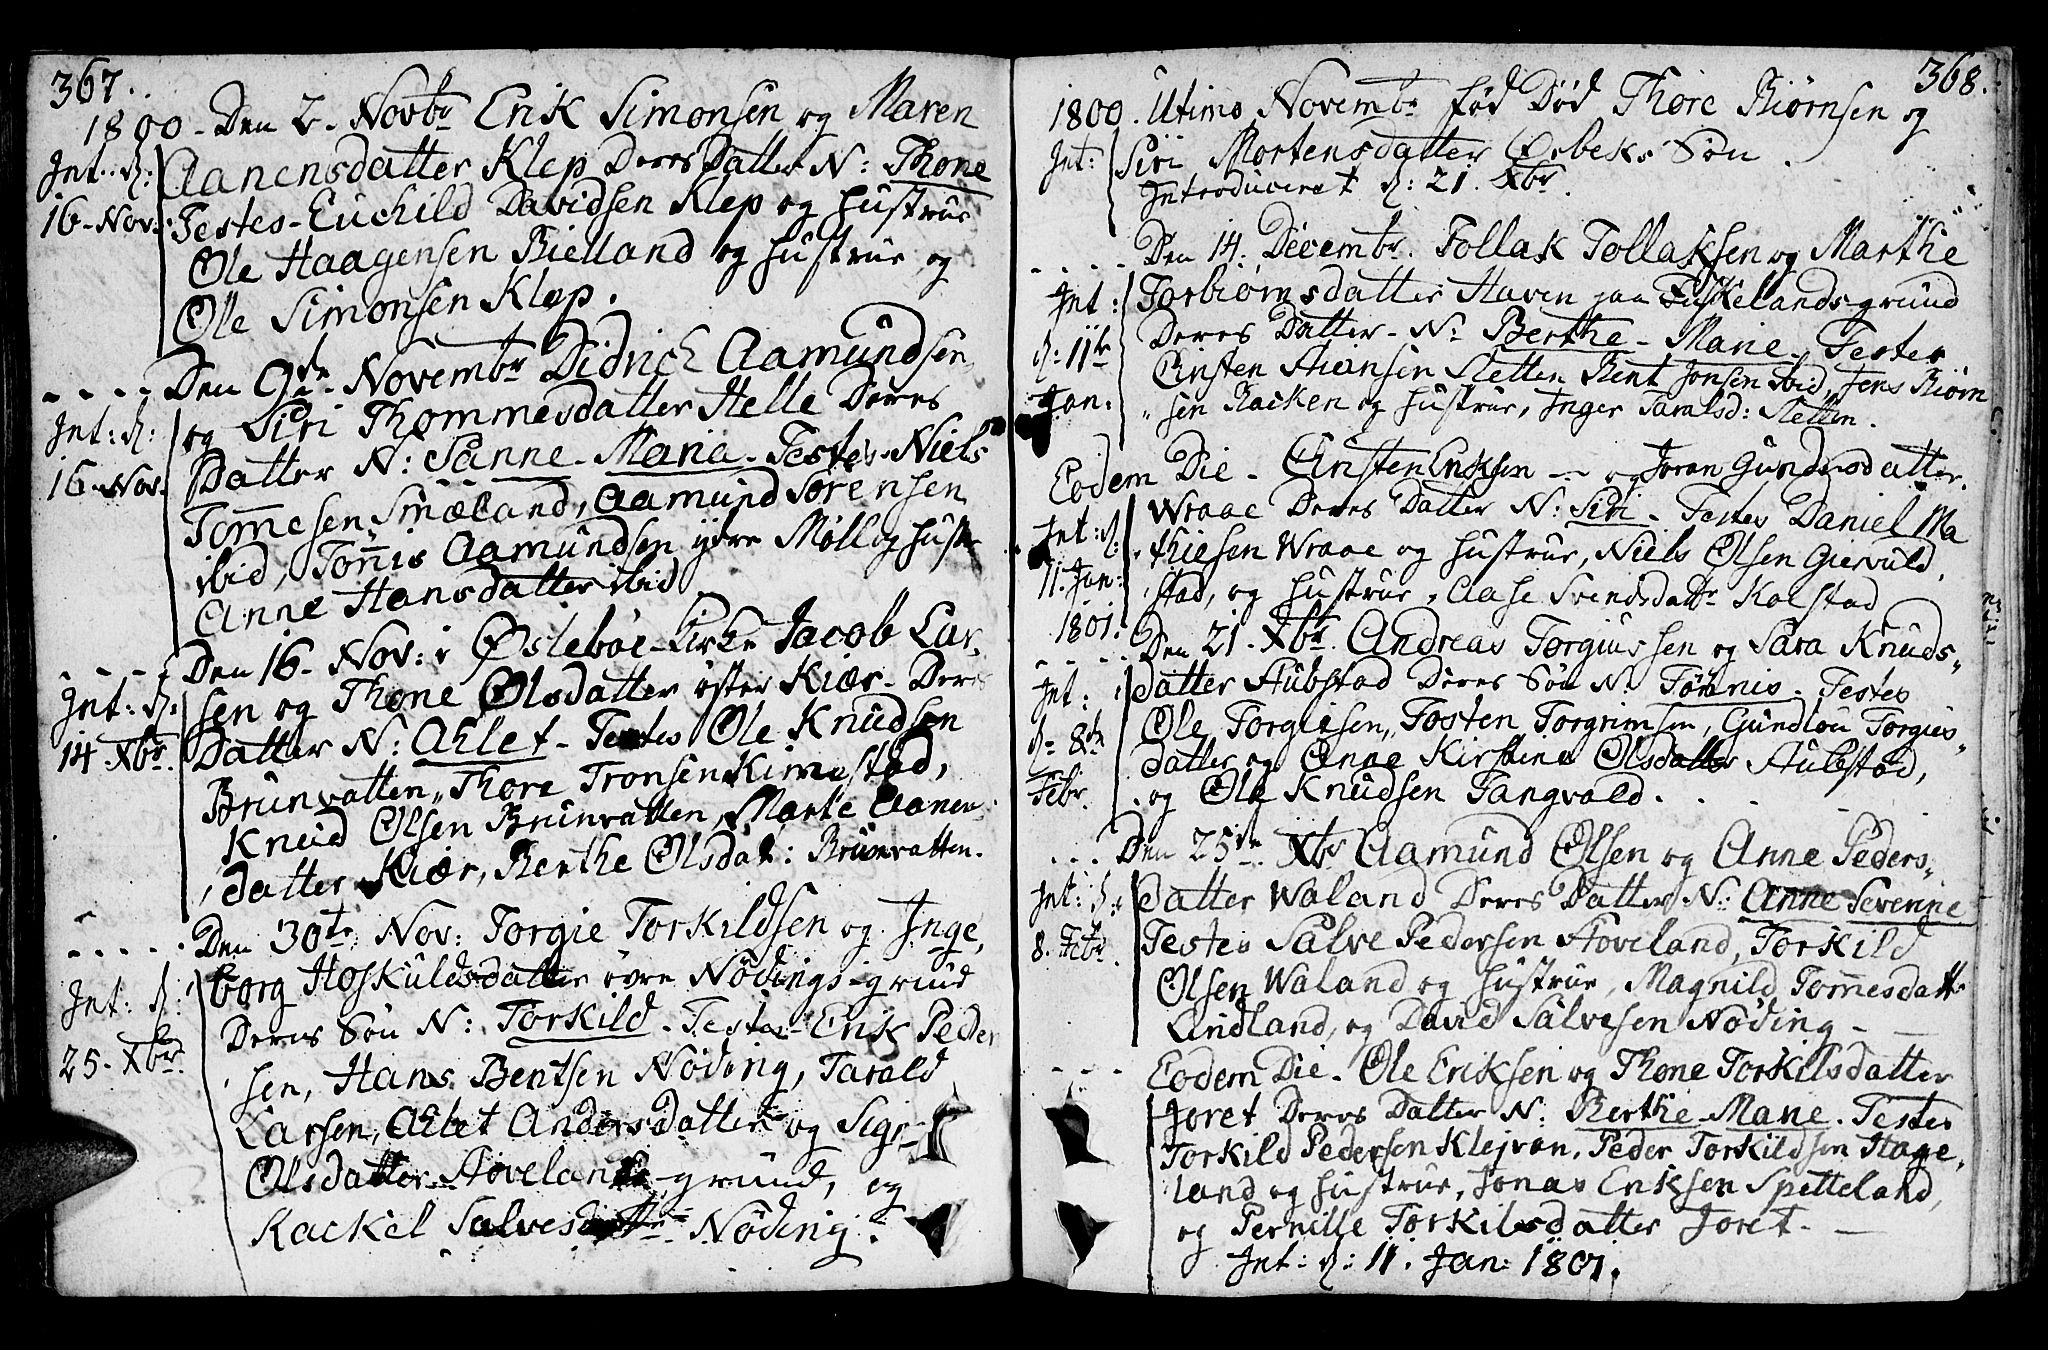 367.
1800 - Den 2. Novbr Erik Simonsen og Maren
Int: d: Aanensdatter Klep Deres Datter N: Thone
16-Nov. Testes - Euchild Davidsen Klep og Hustrue
Ole Haagensen Bielland og Hustrue og
Ole Simonsen Klep.
Den 9de Novembr Didrich Aamundsen
Int: d: og Siri Thommesdatter Helle Deres
16-Nov. Datter N: Sanne - Maria - Testes - Niels
Tommesen Smæland, Aamund Sørensen
ibid, Tønnis Aamundsen ydre Møll og Hustr
Anne Hansdatter ibid
Den 16- Nov: i Øslebøe-Kirke Jacob Lar-
Int: d: sen og Thone Olsdatter øster Kiær - Deres
14 Xbr. Datter N: Ahlet - Testes Ole Knudsen
Brunvatten, Thore Tronsen Kimestad,
Knud Olsen Brunvatten, Marte Aanen
datter Kiær, Berthe Olsdat: Brunvatten.
Den 30te Nov: Torgie Torkildsen og Inge,
Int: d: borg Hoskuldsdatter övre Nödings-grund
25- Xbr. Deres Søn N: Torkild - Testes - Erik Peder
sen, Hans Bentsen Nöding, Tarald
Larsen, Ahlet Andersdatter og Sigr
Olsdatter Støveland-grund, og
Rackel Salvesdattr Nöding.
368.
1800. Utimo Novembr fød Død Thore Biørnsen og
Int: Siri Mortensdatter Øebeks Søn.
Introduceret d: 21. Xbr.
Den 14. Decembr. Tollak Tollaksen og Marthe
Int: Torbiørnsdatter Haven paa Fuskelandsgrund
d: 11te Deres Datter - N: Berthe - Marie - Testes
Jan: Cristen Stiansen Sletten Bent Jonsen ibid, Jens Biørn
sen Racken og Hustrue, Inger Taralsd: Sletten.
Eodem Die - Cristen Eriksen - og Joran Gundersdatter
Wraae Deres Datter N: Siri - Testes Daniel Ma
Int: d: thiesen Wraae og Hustrue, Niels Olsen Giervuld,
11. Jan: stad, og Hustrue, Aase Svendsdattr Kolstad
1801. Den 21. Xbr. Andreas Torgiussen og Sara Knuds,,
Int: datter Stubstad Deres Søn N: Tønnis - Testes
d: 8de Ole Torgiesen, Tosten Torgrimsen, Gundlou Torgius,,
Febr. datter og Anne Kirstine Olsdatter Stubstad,
og Ole Knudsen Tangvald.
Den 25de Xbr Aamund Olsen og Anne Peders,,
Int: d: Datter Waland Deres Datter N: Anne Severine
8. Febr. Testes Salve Pedersen Støveland, Torkild
Olsen Waland og Hustrue, Magnild Tommesdattr
Lindland, og David Salvesen Nöding -
Eodem Die - Ole Eriksen og Thone Torkilsdatter
Joret Deres Datter N: Berthe - Marie. Testes
Torkild Pedersen Klejvan, Peder Torkildsen Hage,
land og Hustrue, Jonas Eriksen Spetteland,
og Pernille Torkilsdatter Joret -
Int: d: 11. Jan: 1801.